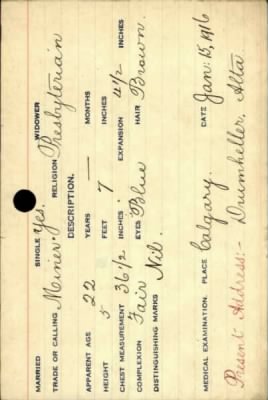 MARRIED SINGLE Yes. WIDOWER
TRADE OR CALLING Miner. RELIGION Presbyterian
DESCRIPTION.
APPARENT AGE 22 YEARS — MONTHS
HEIGHT 5 FEET 7 INCHES
CHEST MEASUREMENT 36 1/2 INCHES EXPANSION 4 1/2 INCHES
COMPLEXION Fair EYES Blue HAIR Brown.
DISTINGUISHING MARKS Nil.
MEDICAL EXAMINATION. PLACE Calgary. DATE Jan: 15, 1916
Present Address:- Drumheller, Alta.